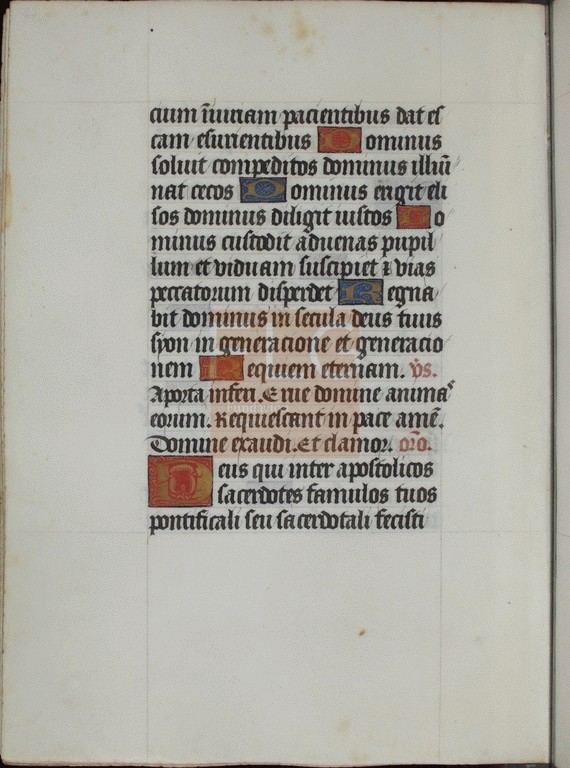 cium iniuriam pacientibus dat es
cam esurientibus Dominus
soluit compeditos dominus illūi
nat cecos Dominus erigit eli
sos dominus diligit iustos Do
minus custodit aduenas pupil
lum et viduam suscipiet ⁊ vias
peccatorum disperdet Regna
bit dominus in secula deus tuus
syon in generacione et generacio
nem Requiem eternam. v̄s.
Aporta inferi. Erue domine animas
eorum. Requiescant in pace amē.
Domine exaudi. Et clamor. oro.
Deus qui inter apostolicos
sacerdotes famulos tuos
pontificali seu sacerdotali fecisti